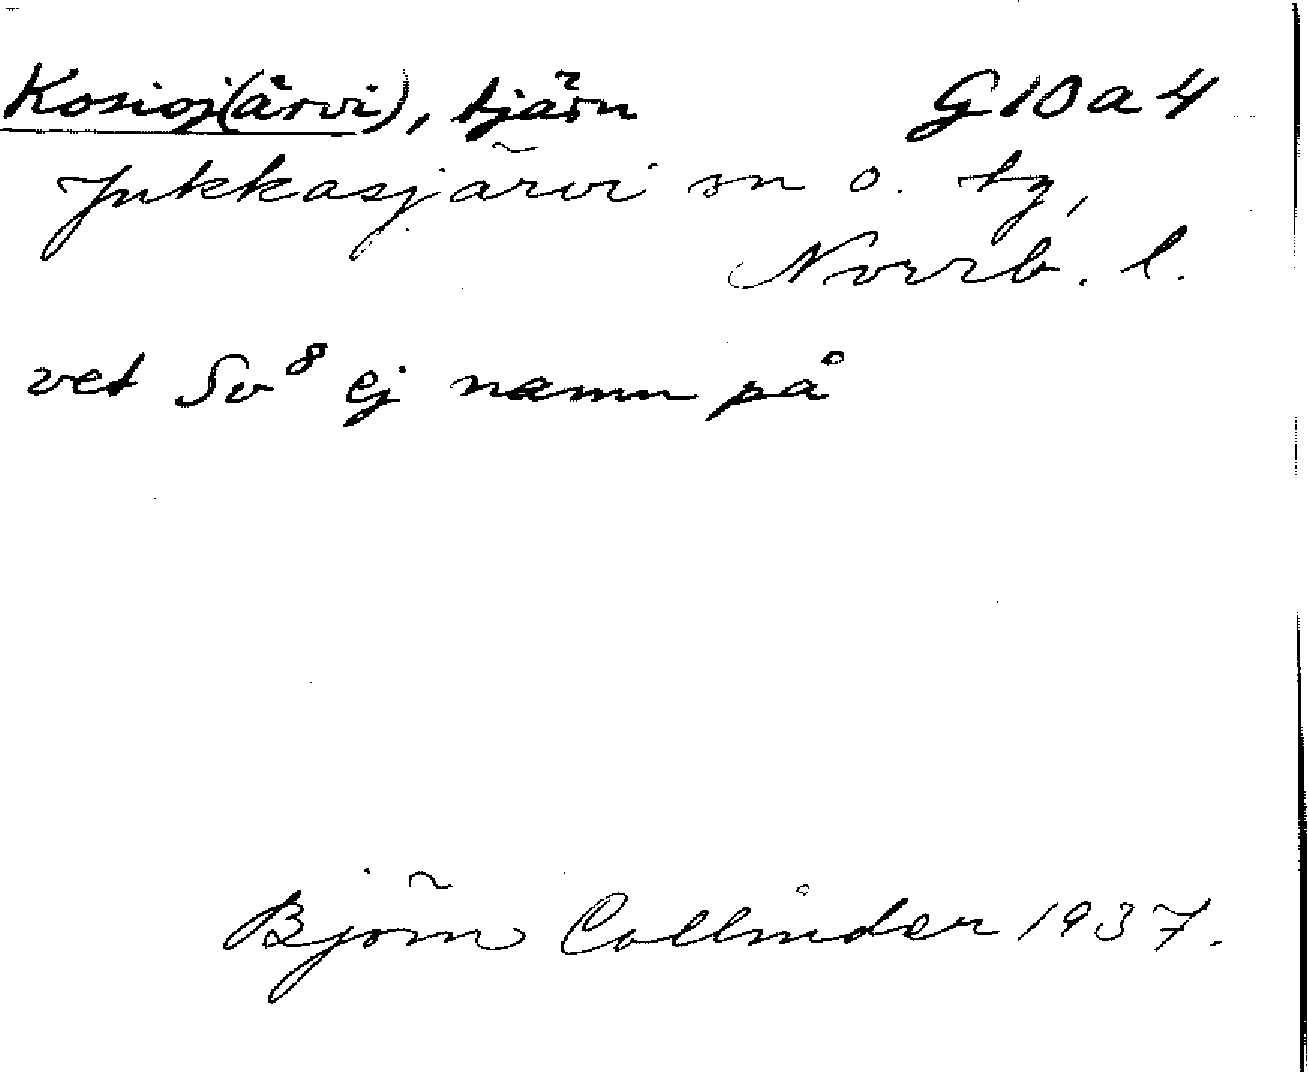 Kosioj(ärvi), tjärn G10a4
Jukkasjärvi sn o. tg,
Norrb. l.
vet Sv⁸ ej namn på
Björn Collinder 1937.